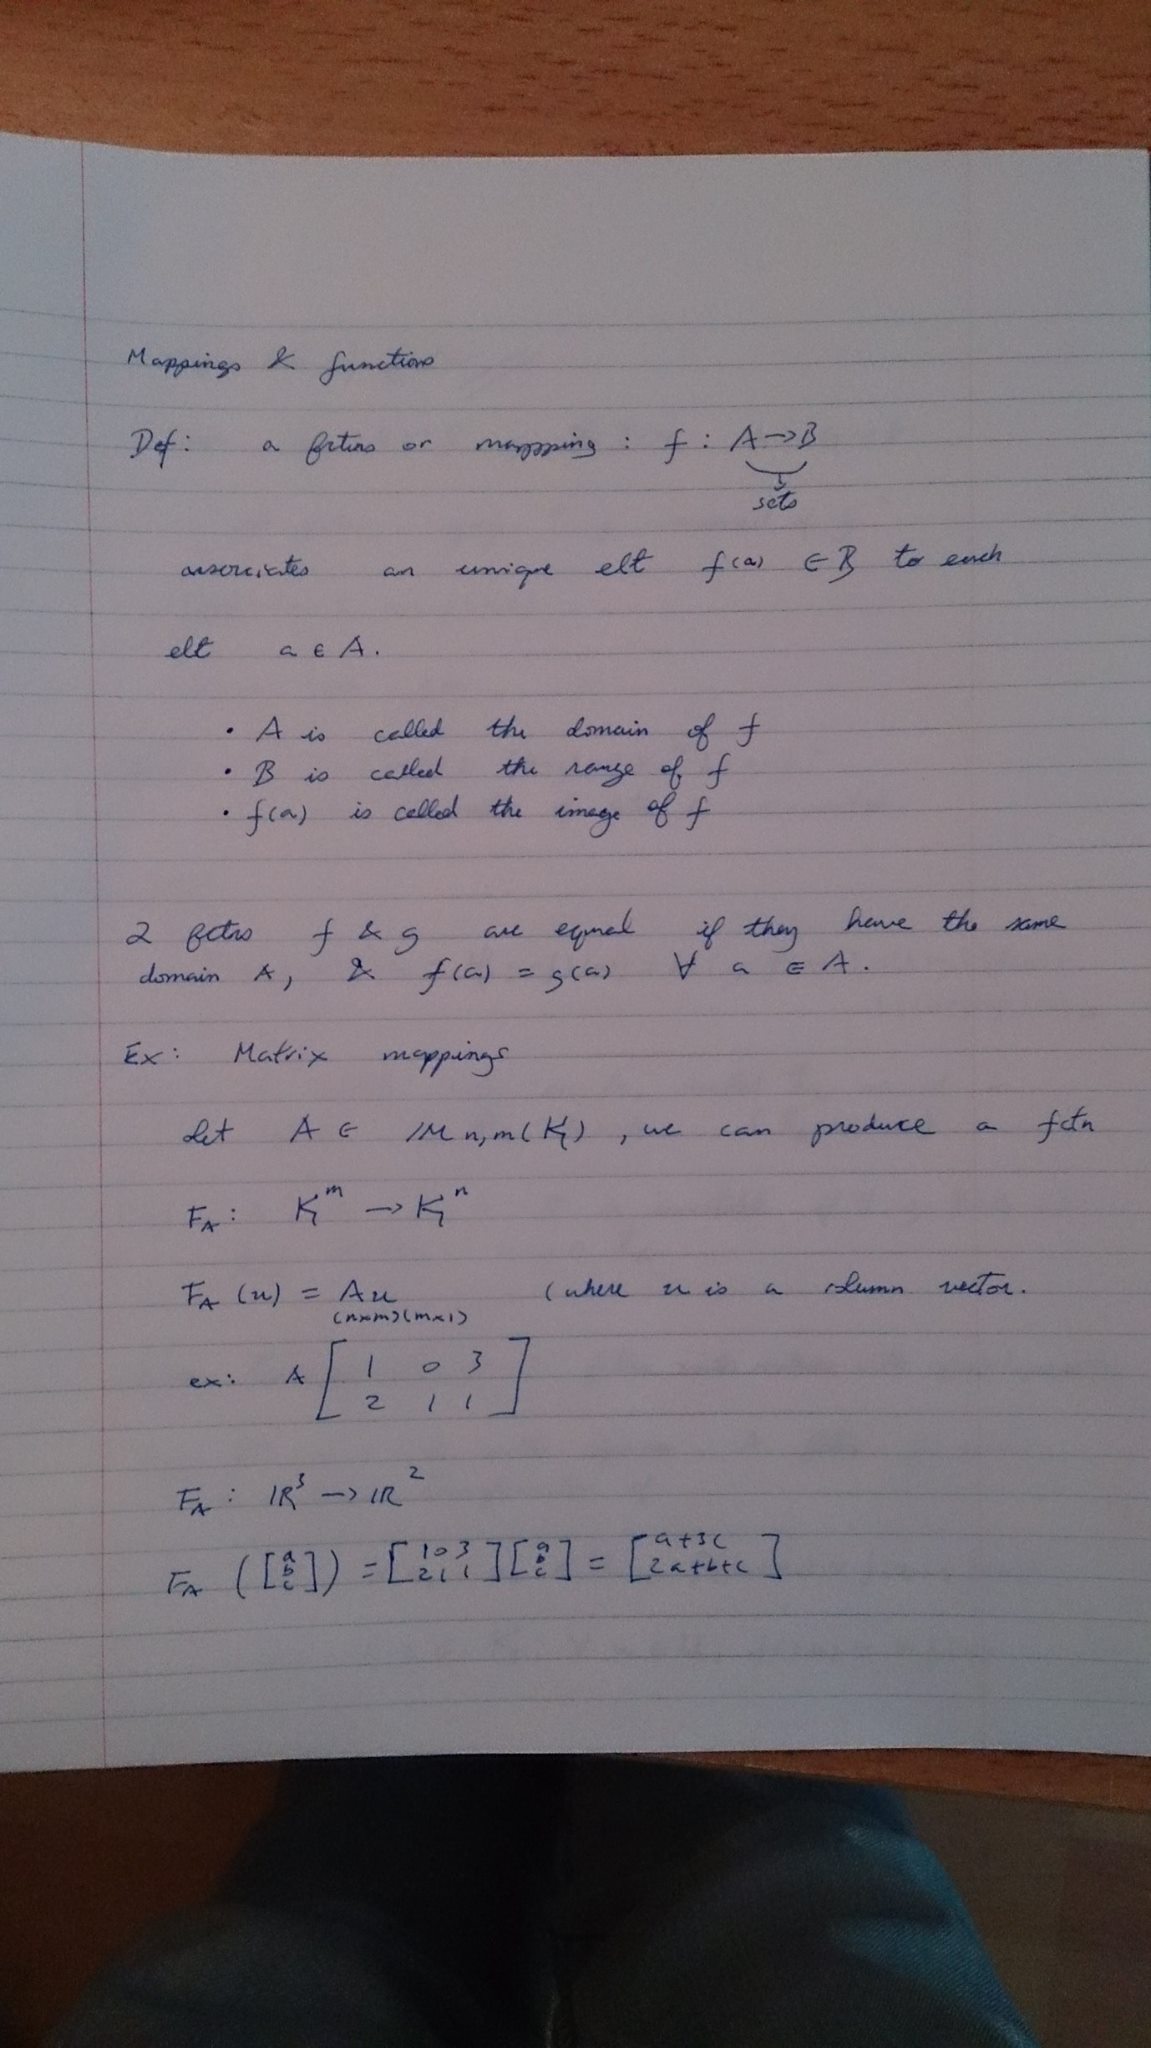 Mappings & functions
Def: a fctns or mappping : f : A → B
sets
associates an unique elt f(a) ∈ B to each
elt a ∈ A.
• A is called the domain of f
• B is called the range of f
• f(a) is called the image of f
2 fctns f & g are equal if they have the same
domain A, & f(a) = g(a) ∀ a ∈ A.
Ex: Matrix mappings
Let A ∈ 𝕄 n,m(𝕂), we can produce a fctn
F_A : 𝕂^m → 𝕂^n
F_A (u) = Au (where u is a column vector.
(n×m)(m×1)
ex: A [1 0 3
2 1 1]
F_A : ℝ³ → ℝ²
F_A ([a b c]) = [1 0 3 2 1 1] [a b c] = [a+3c 2a+b+c]